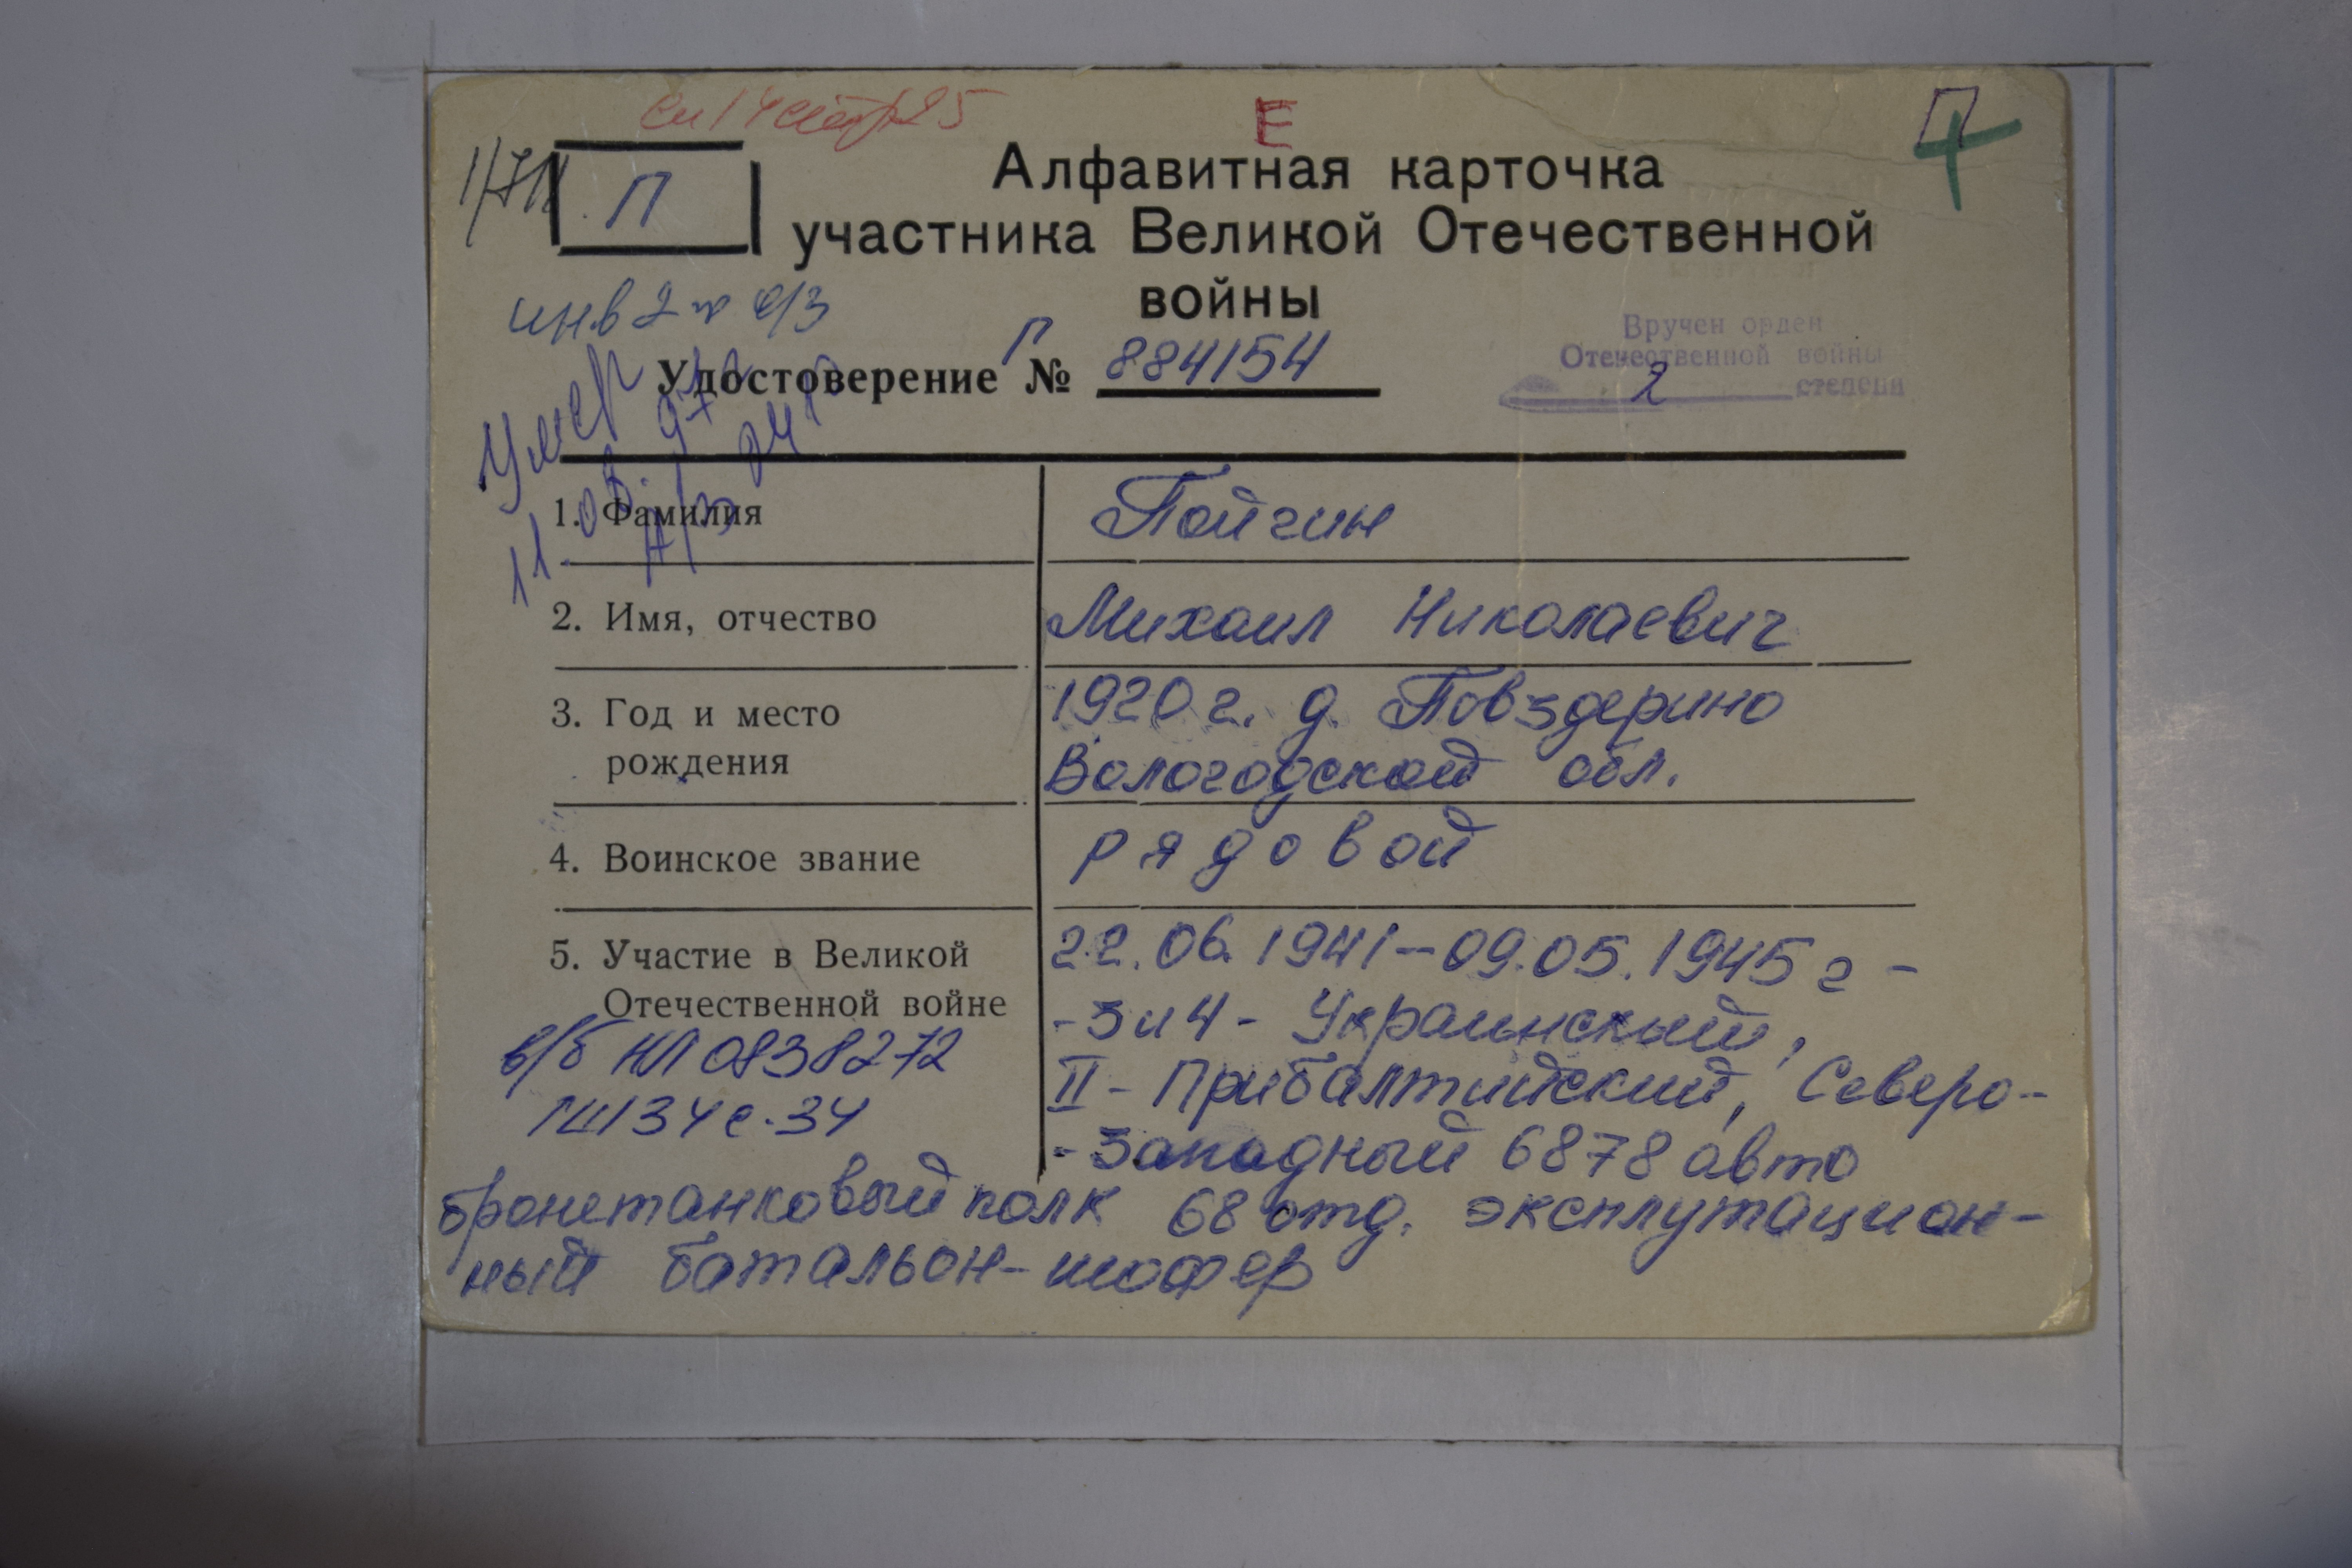 Е
П
П
Алфавитная карточка
участника Великой Отечественной
войны
инв 2
Удостоверение П № 884154
Вручен орден
Отечественной войны
2 степени
Умер
11.08.97
1. Фамилия Пойгин
2. Имя, отчество Михаил Николаевич
3. Год и место 1920 г. д. Повздерино
рождения Вологодской обл.
4. Воинское звание рядовой
5. Участие в Великой 22.06.1941-09.05.1945 г -
Отечественной войне - 3 и 4 - Украинский,
в/б НЛ 0838272 II - Прибалтийский, Северо-
ГШ 34 с. 34 - Западный 6878 авто
бронетанковый полк 68 отд. эксплутацион-
ный батальон - шофер